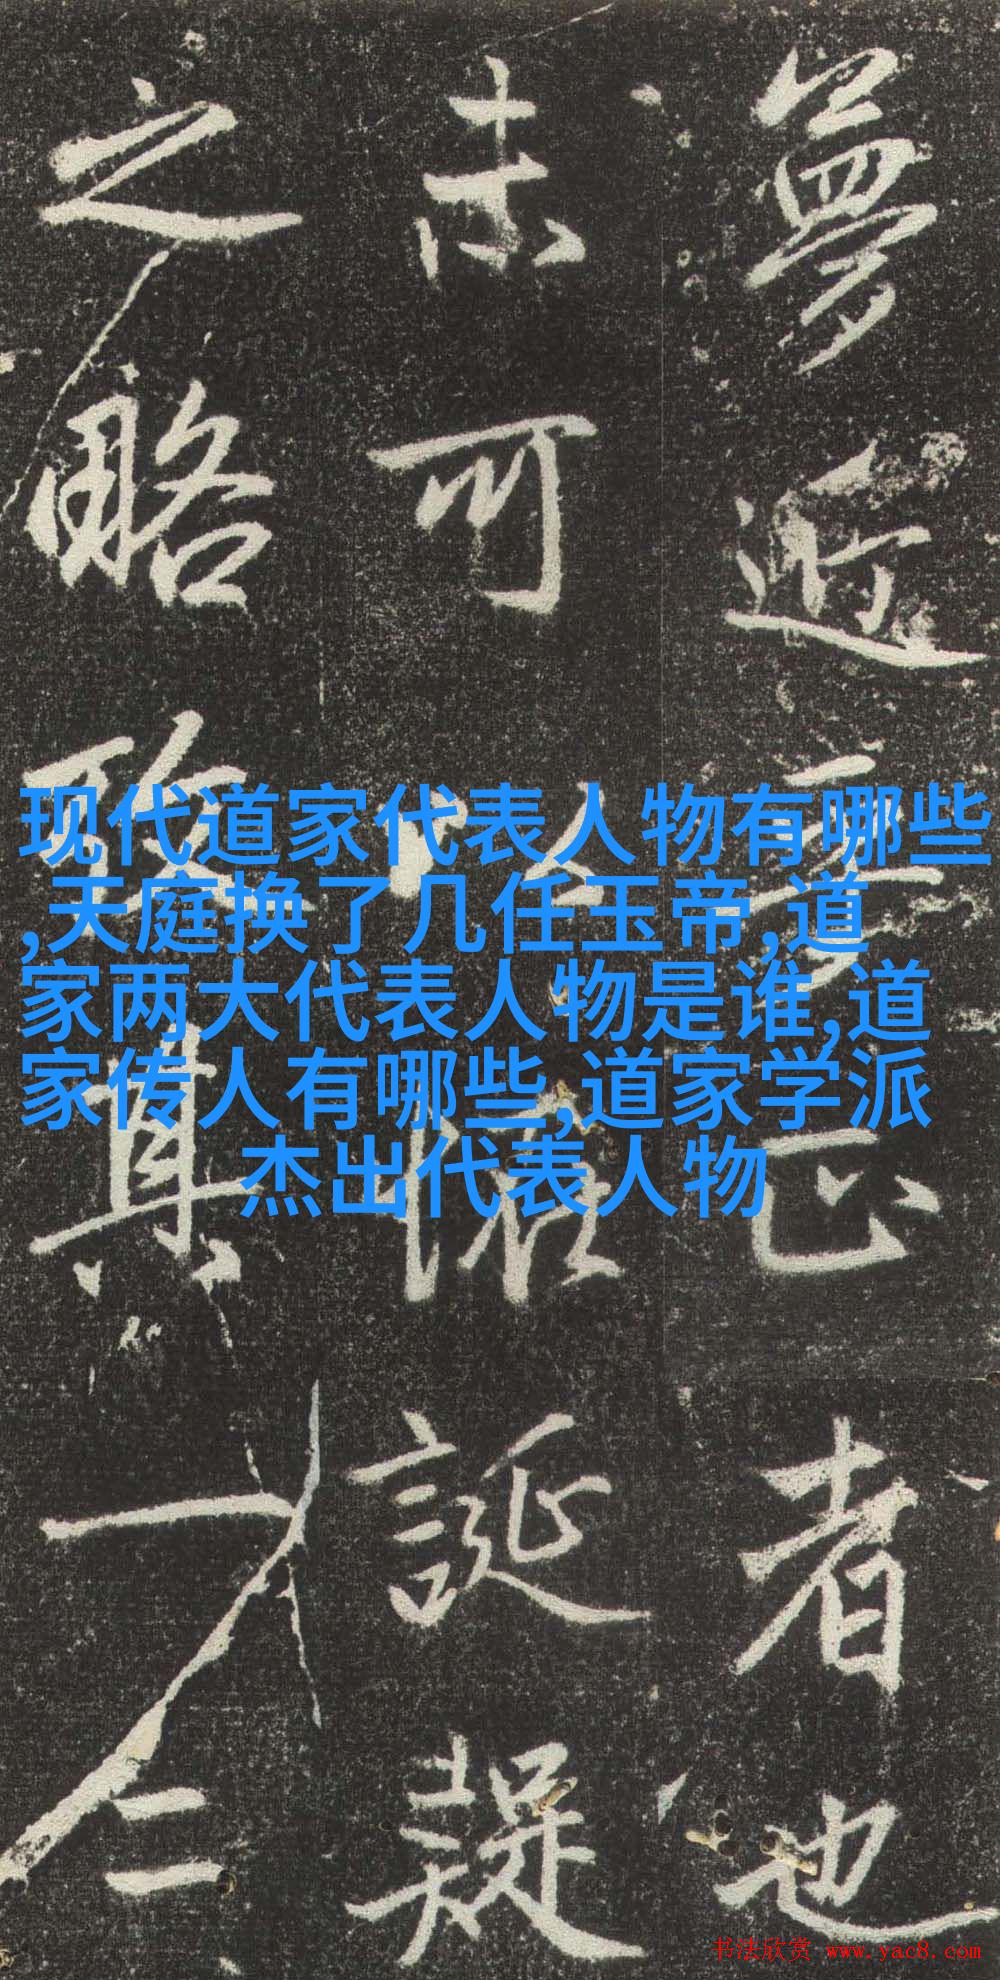 夢近正者也
未可以誕疑
之略一二
现代道家代表人物有哪些
,天庭换了几任玉帝,道
家两大代表人物是谁,道
家传人有哪些,道家学派
杰出代表人物
书法欣赏 www.yac8.com